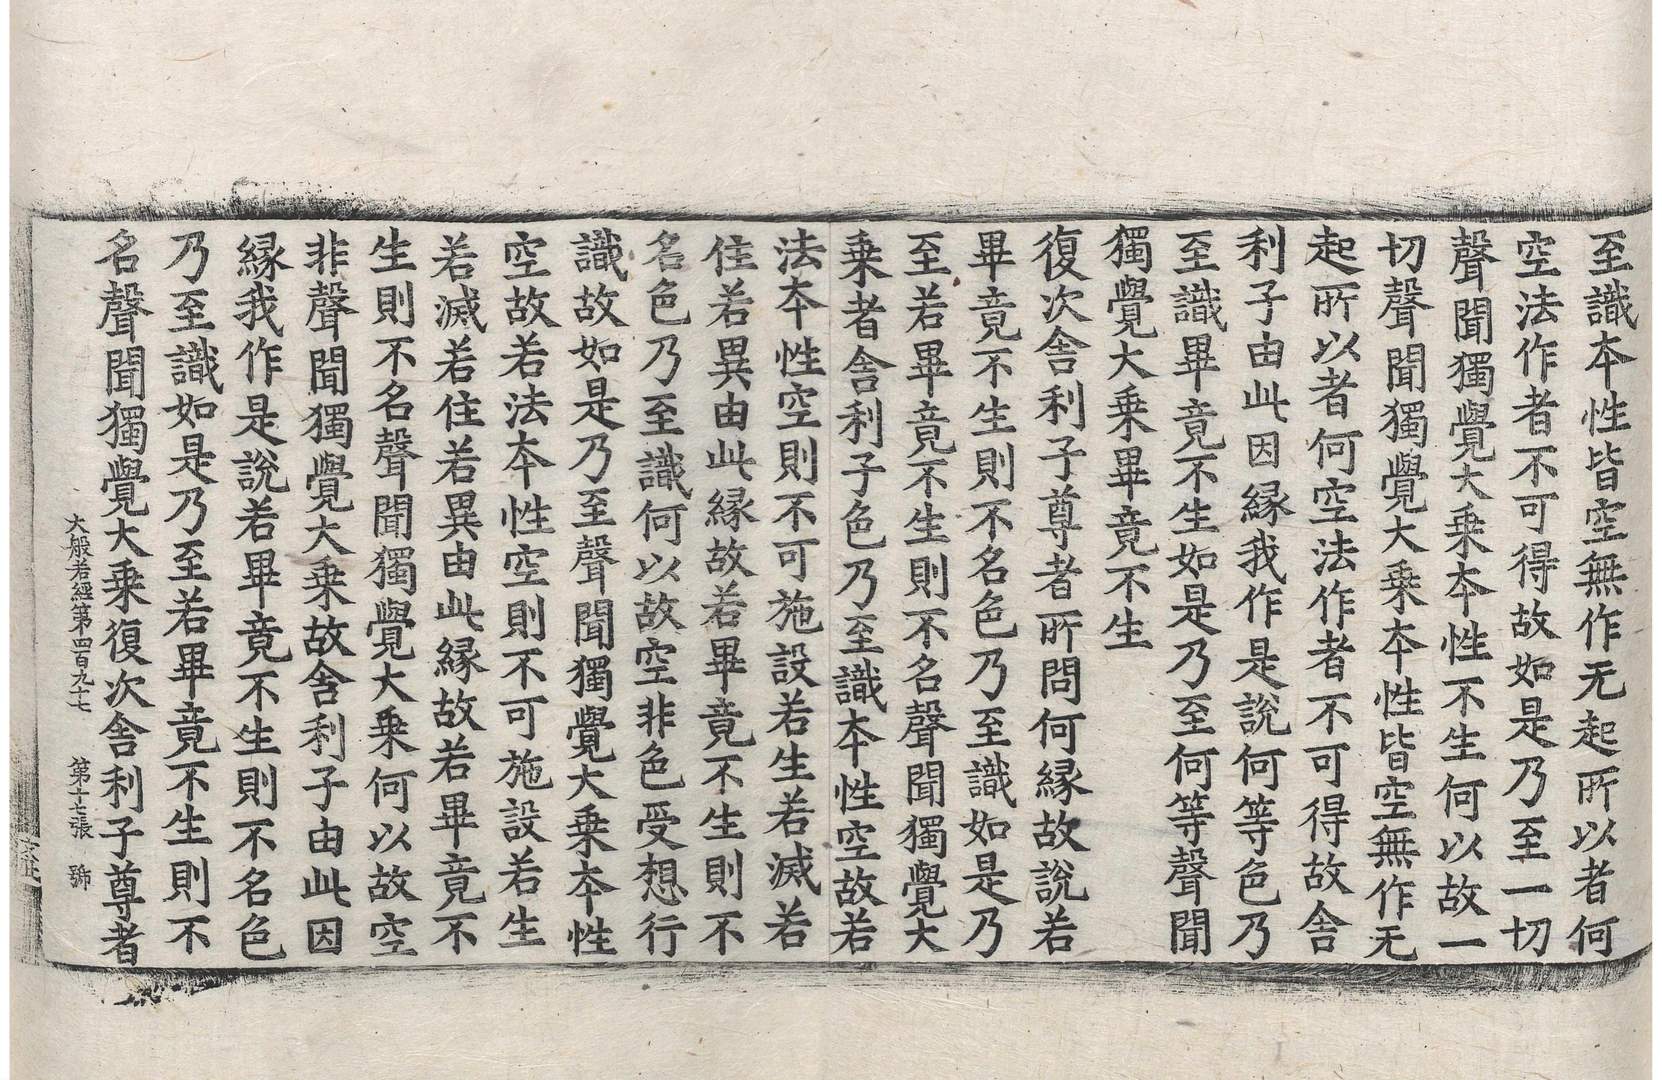 至識本性皆空無作无起所以者何
空法作者不可得故如是乃至一切
聲聞獨覺大乘本性不生何以故一
切聲聞獨覺大乘本性皆空無作无
起所以者何空法作者不可得故舍
利子由此因緣我作是說何等色乃
至識畢竟不生如是乃至何等聲聞
獨覺大乘畢竟不生
復次舍利子尊者所問何緣故說若
畢竟不生則不名色乃至識如是乃
至若畢竟不生則不名聲聞獨覺大
乘者舍利子色乃至識本性空故若
法本性空則不可施設若生若滅若
住若異由此緣故若畢竟不生則不
名色乃至識何以故空非色受想行
識故如是乃至聲聞獨覺大乘本性
空故若法本性空則不可施設若生
若滅若住若異由此緣故若畢竟不
生則不名聲聞獨覺大乘何以故空
非聲聞獨覺大乘故舍利子由此因
緣我作是說若畢竟不生則不名色
乃至識如是乃至若畢竟不生則不
名聲聞獨覺大乘復次舍利子尊者
大般若經第四百九十七 第十三張 號